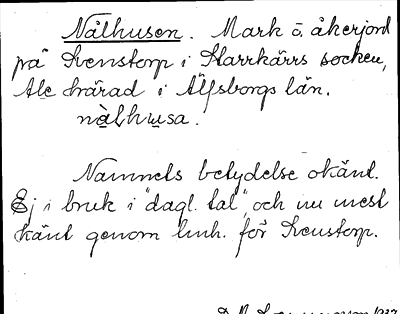 Nålhusen. Mark o. åkerjord
på Svenstorp i Starrkärrs socken,
Ale härad i Älfsborgs län.
nålhusa.
Namnets betydelse okänt.
Ej i bruk i "dagl. tal", och nu mest
känt genom linh. för Svenstorp.